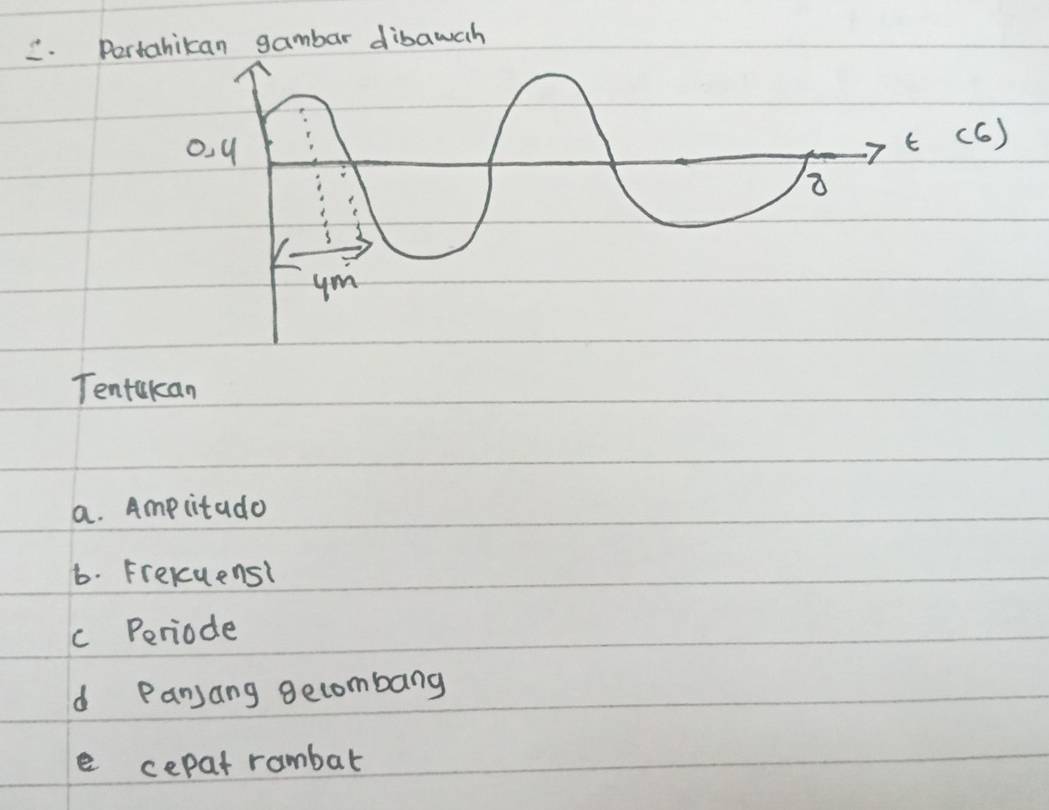 2. Pertahikan gambar dibawah
0,4
t (s)
8
4m
Tentukan
a. Amplitudo
b. Frekuensi
c Periode
d Panjang gelombang
e cepat rambat